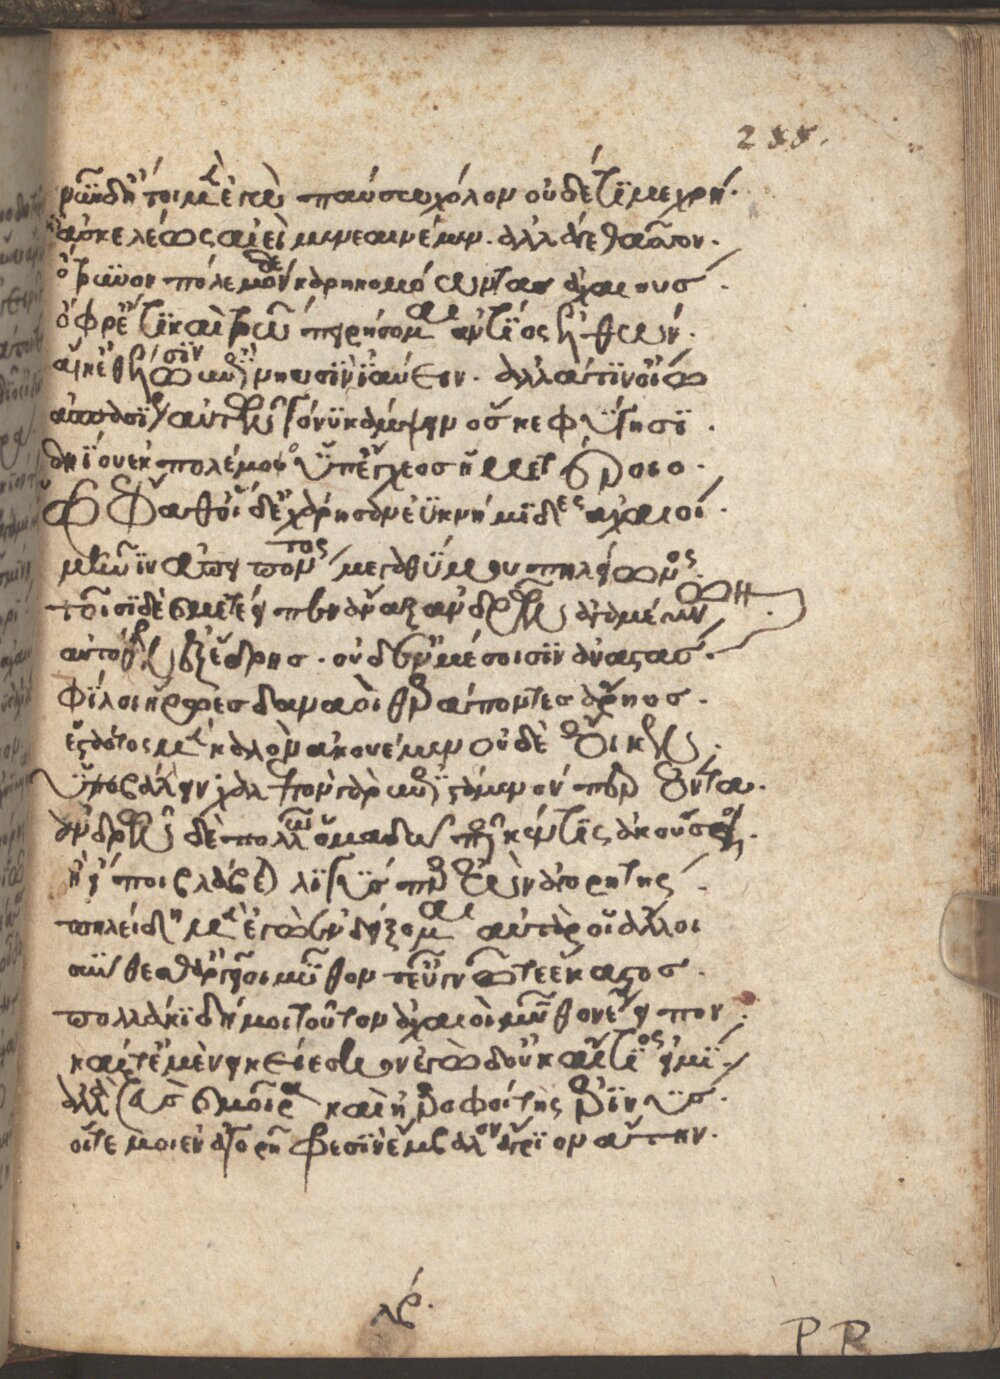 νῦν δ' ἤτοι μὲν ἐγὼ παύω χόλον οὐδέ τί με χρή.
ἀσκελέως αἰεὶ μενεαινέμεν. ἀλλ' ἄγε θᾶττον.
ὄτρυνον πόλεμον δὲ καρηκομόωντας ἀχαιούς.
ὄφρ' ἔτι καὶ τρώων πειρήσομαι ἀντίος ἐλθών.
αἴ κ' ἐθέλωσιν ἐπὶ νηυσὶν ἰαύειν. ἀλλά τιν' οἴω
ἀσπασίως αὐτῶν γόνυ κάμψειν ὅς κε φύγησι.
δηΐου ἐκ πολέμοιο ὑπ' ἔγχεος ἡμετέροιο.
ὣς ἔφαθ' οἱ δ' ἐχάρησαν ἐϋκνήμιδες ἀχαιοί.
μῆνιν ἀπειπόντος μεγαθύμου πηλείωνος.
τοῖσι δὲ καὶ μετέειπεν ἄναξ ἀνδρῶν ἀγαμέμνων
αὐτόθεν ἐξ ἕδρης. οὐδ' ἐν μέσοισιν ἀναστάς.
φίλοι ἥρωες δαναοὶ θεράποντες ἄρηος.
ἑσταότος μὲν καλὸν ἀκουέμεν οὐδὲ ἔοικεν.
ὑββάλλειν χαλεπὸν γὰρ ἐπιστάμενόν περ ἐόντα.
ἀνδρῶν δὲ πολλῶ ὁμάδω πῶς κέν τις ἀκούσαι.
ἢ εἴποι βλάβεται λιγύς περ ἐὼν ἀγορητής.
πηλείδη μὲν ἐγὼν ἐνδείξομαι αὐτὰρ οἱ ἄλλοι
σύνθεσθ' ἀργεῖοι μῦθόν τ' εὖ γνῶτε ἕκαστος.
πολλάκι δή μοι τοῦτον ἀχαιοὶ μῦθον ἔειπον.
καί τέ με νεικείεσκον ἐγὼ δ' οὐκ αἴτιός εἰμι.
ἀλλὰ ζεὺς καὶ μοῖρα καὶ ἠεροφοίτης ἐριννύς.
οἵτε μοι ἐν ἀγορῆ φρεσὶν ἔμβαλον ἄγριον ἄτην.
P R